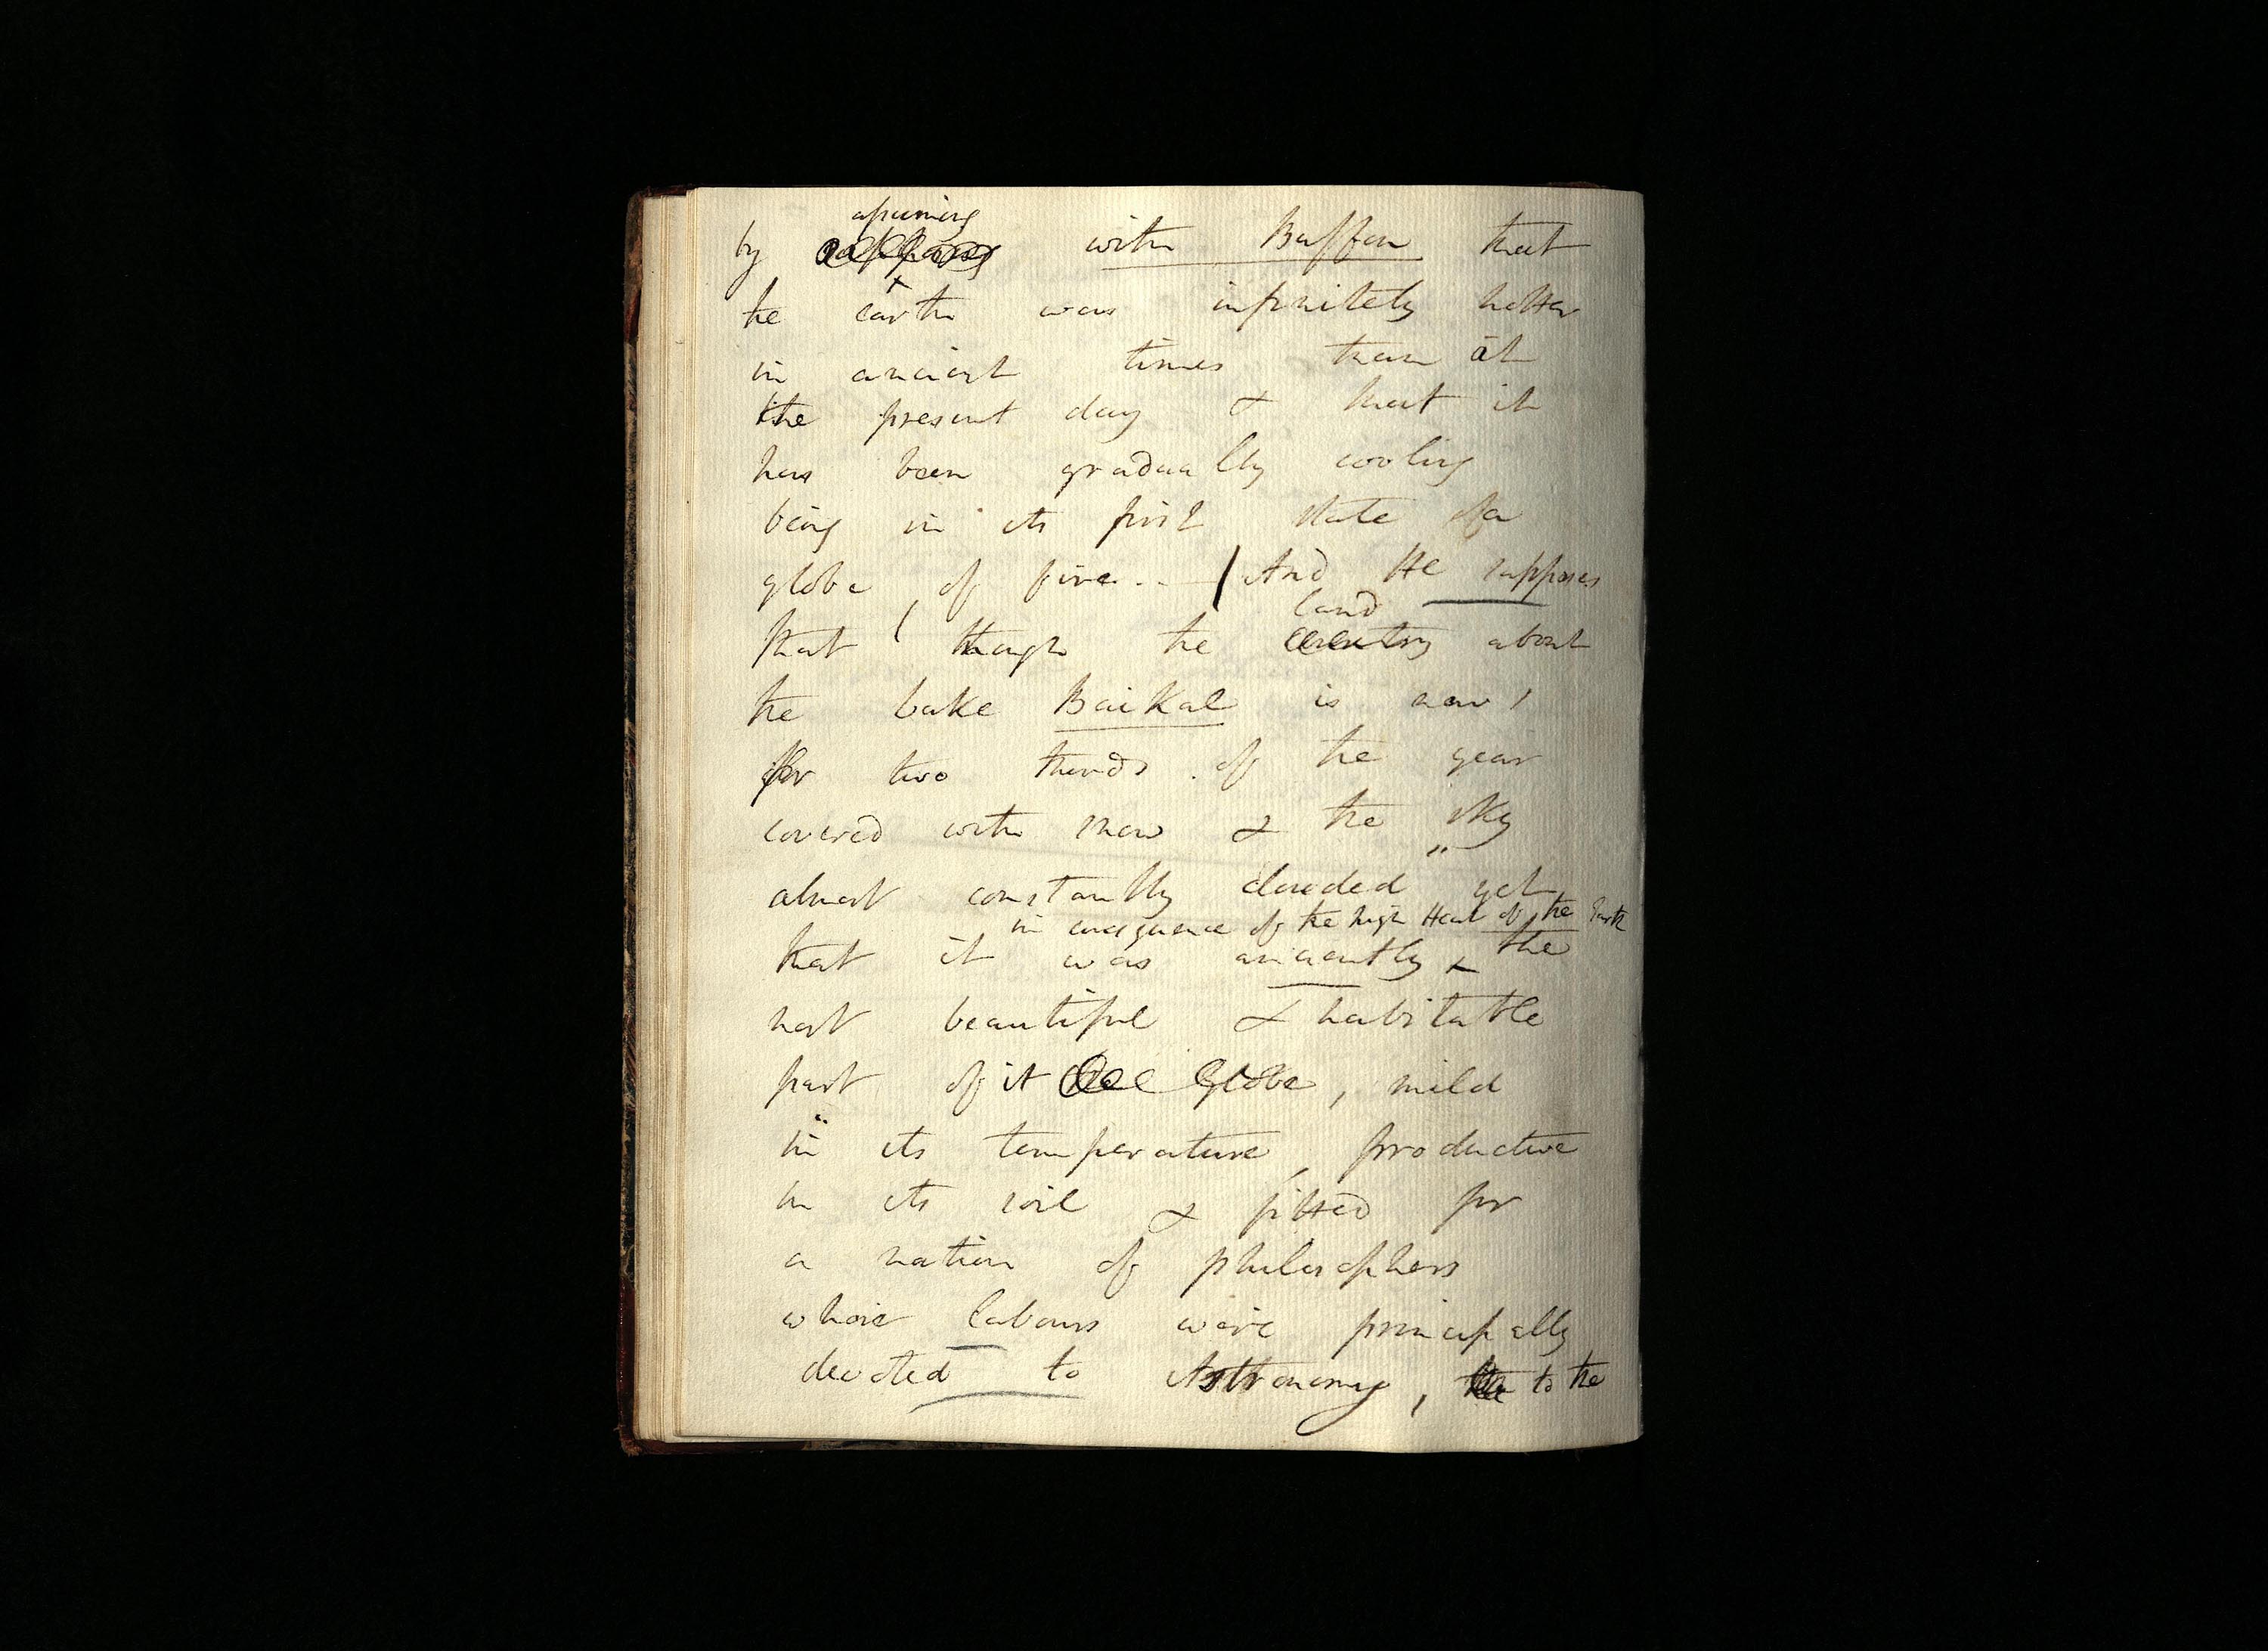 assuming
by supposing with Buffon that
the earth was infinitely hotter
in ancient times than at
the present day & that it
has been gradually cooling
being in its first state of a
globe of fire. - And He supposes
land
that though the country about
the Lake Baikal is now,
for two thirds of the year
covered with snow & the sky
almost constantly clouded yet
in consequence of the high Heat of the Earth
that it was anciently the
most beautiful & habitable
part of it the Globe, mild
in its temperature, productive
in its soil & fitted for
a nation of philosophers
whose labours were principally
devoted to Astronomy, to the